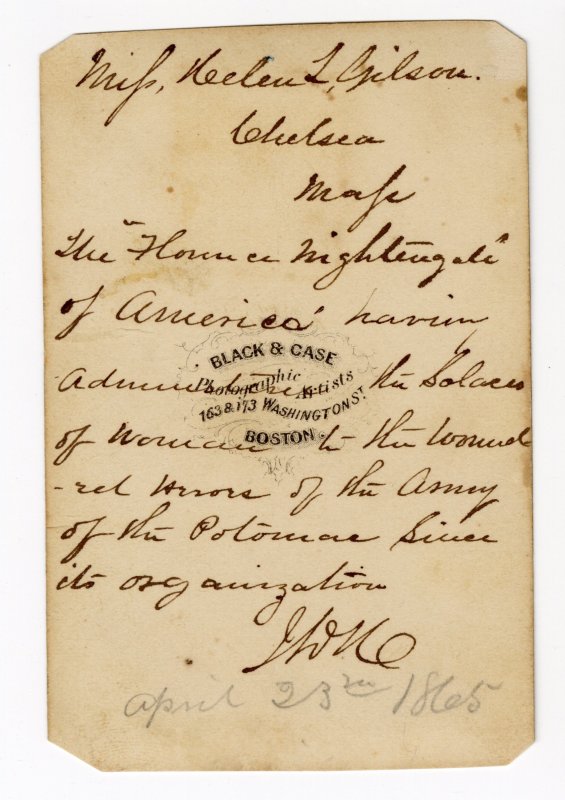 Miss, Helen L, Gilson.
Chelsea
Mass
The "Florence Nightengale
of America" having
BLACK & CASE
Photographic Artists
163 & 173 WASHINGTON ST.
BOSTON.
Administered the Solaces
of Woman to the Wound
-ed Heroes of the Army
of the Potomac Since
its organization
April 23rd 1865